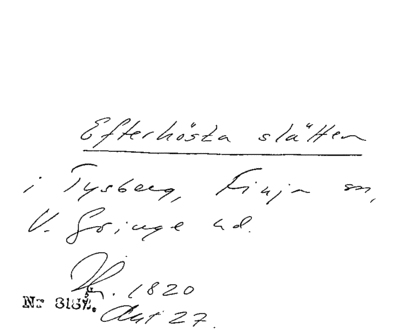 Efterhösta slåtten
i Tysberg, Finja sn,
V. Göinge hd.
1820
Nr 318
Akt 27.